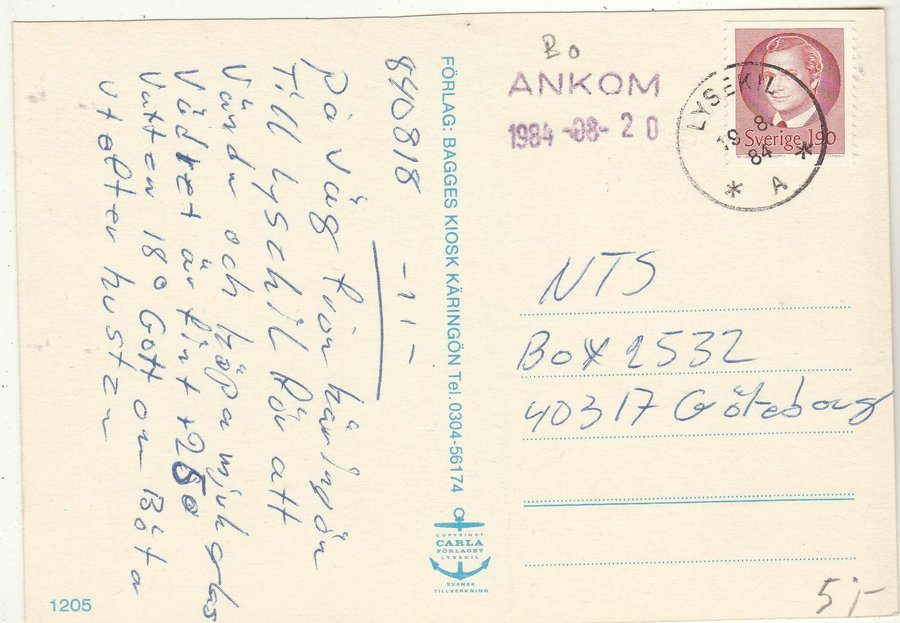 840818 -11-
på väg från käringön
Till Lysekil för att
Vända och köpa mjukglass
Vädret är fint +25°
Vatten 18° Gott om Båtar
utefter kusten
FÖRLAG: BAGGES KIOSK KÄRINGÖN Tel. 0304-56174
COPYRIGHT
CARLA
FÖRLAGET
LYSEKIL
SVENSK
TILLVERKNING
1205
Bo
ANKOM
1984-08-20
LYSEKIL
19 8.
84
* A *
Sverige 1.90
NTS
Box 2532
40317 Göteborg
5:-